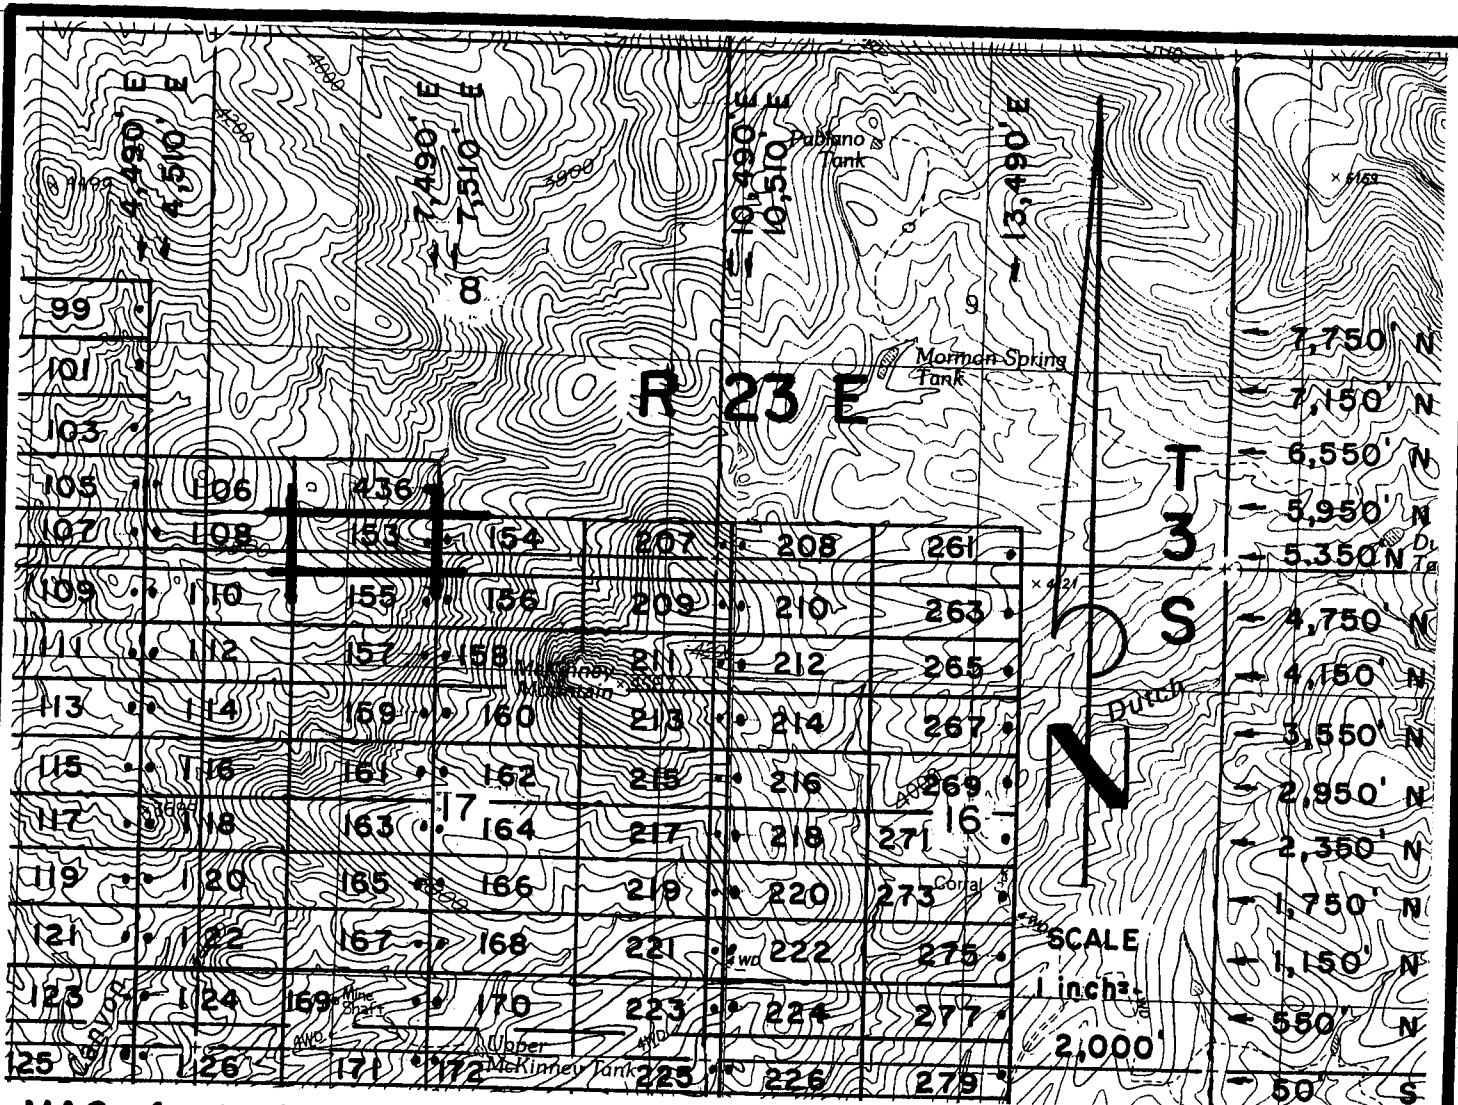 4,490' E
4,510' E
7,490' E
7,510' E
10,490' E
10,510' E
13,490' E
4000
4200
× 4499
3900
Pablano
Tank
× 5159
8
9
Mormon Spring
Tank
R 23 E
T
3
S
7,750' N
7,150' N
6,550' N
5,950' N
5,350' N
4,750' N
4,150' N
3,550' N
2,950' N
2,350' N
1,750' N
1,150' N
550' N
50' S
99
101
103
105 106 436
107 108 153 154 207 208 261
109 110 155 156 209 210 263
111 112 157 158 211 212 265
113 114 159 160 213 214 267
115 116 161 162 215 216 269
117 118 163 164 217 218 271
119 120 165 166 219 220 273
121 122 167 168 221 222 275
123 124 169 170 223 224 277
125 126 171 172 225 226 279
× 4121
McKinney
Mountain
Dutch
N
17
16
4000
Corral
4WD
4WD
Mine
Shaft
4WD
4WD
Canyon
Upper
McKinney Tank
SCALE
1 inch=
2,000'